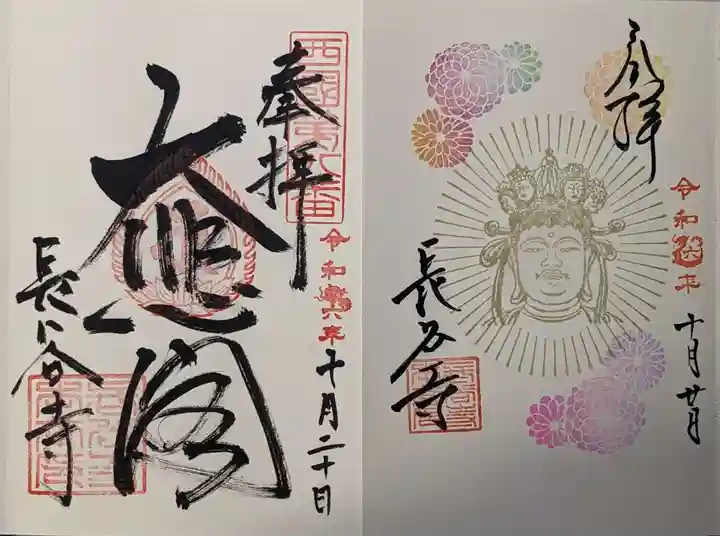 奉拝
西国第八番
大悲閣
令和六年十月二十日
長谷寺
奉拝
令和六年
十月廿日
長谷寺